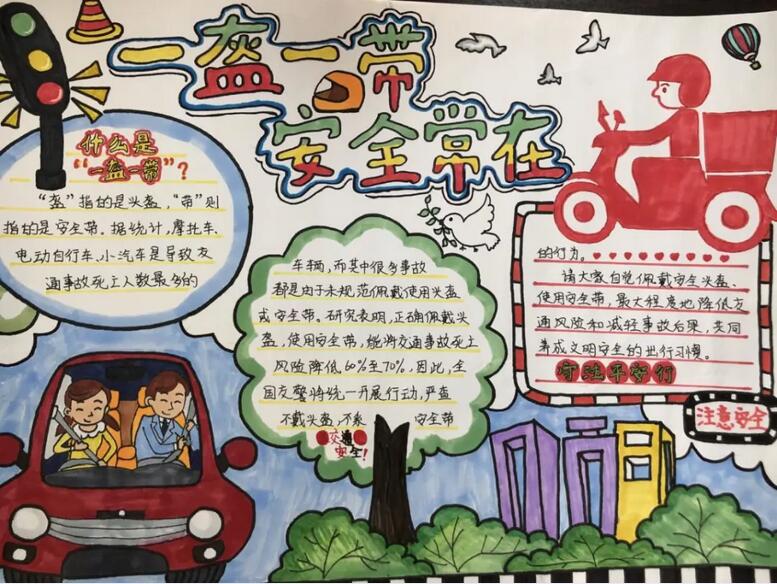 一盔一带
安全常在
什么是
“一盔一带”?
“盔”指的是头盔,“带”则
指的是安全带。据统计,摩托车、
电动自行车、小汽车是导致交
通事故死亡人数最多的
车辆,而其中很多事故
都是由于未规范佩戴使用头盔
或安全带。研究表明,正确佩戴头
盔、使用安全带,能将交通事故死亡
风险降低60%至70%,因此,全
国交警将统一开展行动,严查
不戴头盔、不系 安全带
交通
安全!
的行为。
请大家自觉佩戴安全头盔、
使用安全带,最大程度地降低交
通风险和减轻事故后果,共同
养成文明安全的出行习惯。
守法平安行
注意安全